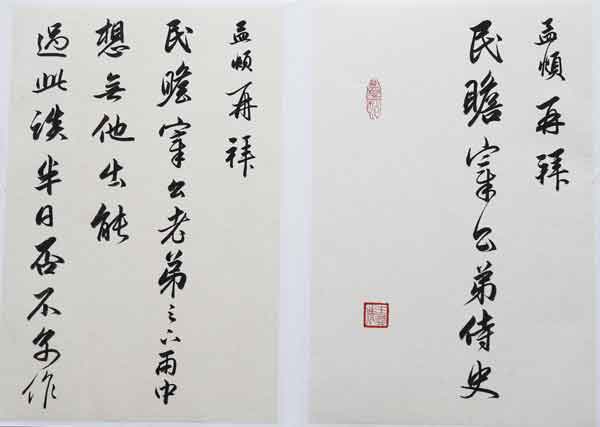 孟頫再拜
民瞻宰公弟侍史
孟頫再拜
民瞻宰公老弟足下雨中
想無他出能
過此談半日否不作